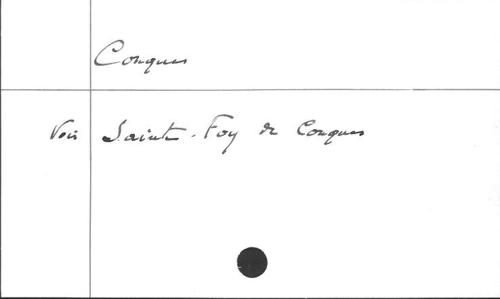 Conques
Voir Sainte-Foy de Conques